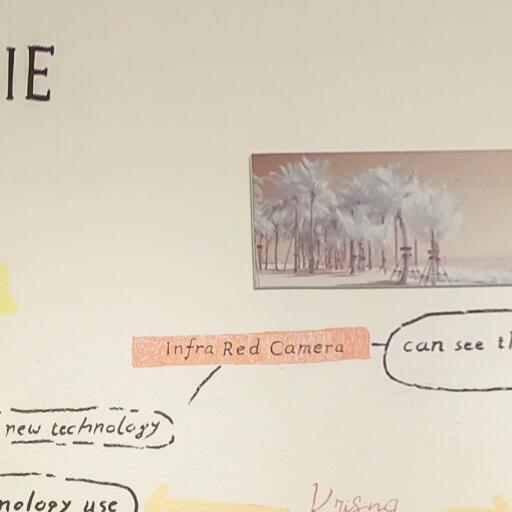 IE
Infra Red Camera
can see th
new technology
nology use
Vrisna